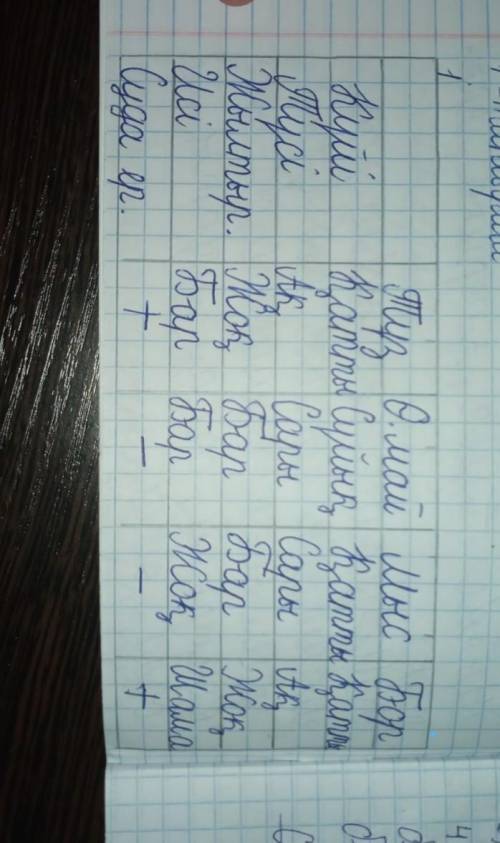 1.
Тұз Ө.май Мыс Бор
Күйі Қатты Сұйық Қатты Қатты
Түсі Ақ Сары Сары Ақ
Жылтыр. Жоқ Бар Бар Жоқ
Исі Бар Бар Жоқ Шама
Суда ер. + – – +